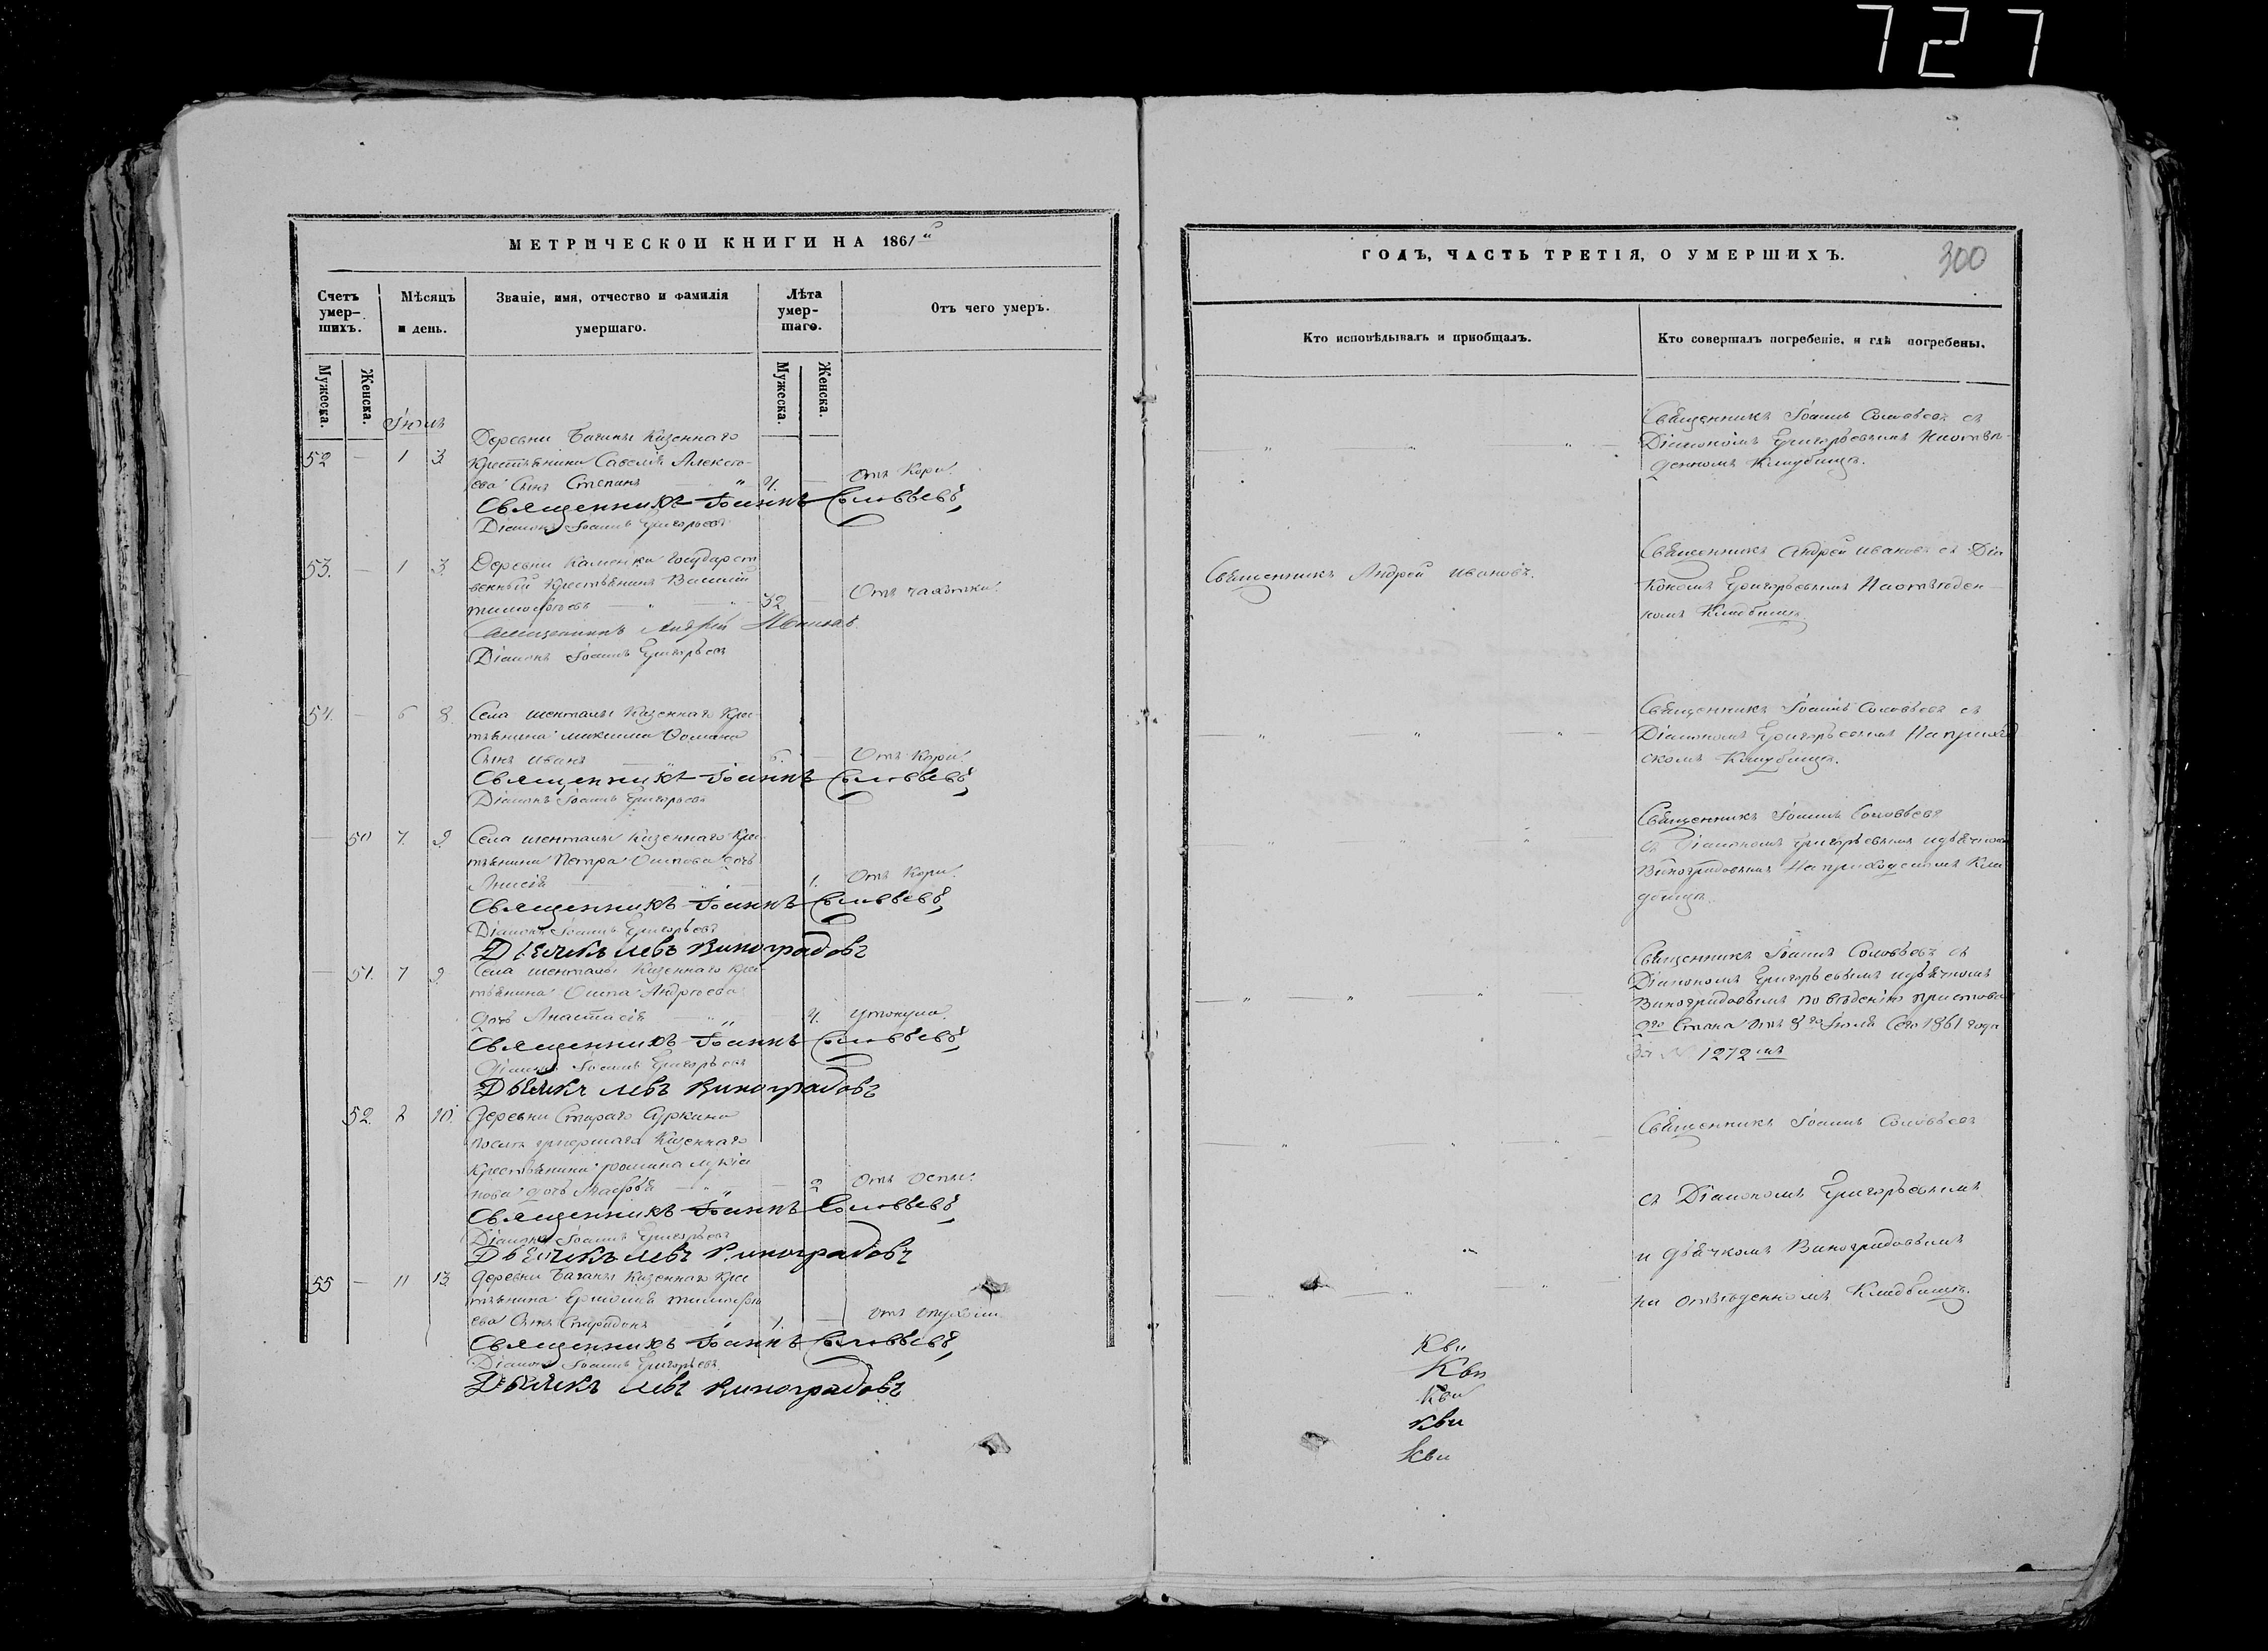 727
МЕТРИЧЕСКОЙ КНИГИ НА 1861й
Счетъ умер-шихъ.
Мѣсяцъ и день.
Званіе, имя, отчество и фамилія умершаго.
Лѣта умер-шаго.
Отъ чего умеръ.
Мужеска.
Женска.
Мужеска.
Женска.
Іюль
Деревни Баганы Казеннаго
52 — 1 3. Крестьянина Савелія Алексѣ-
ева Сынъ Степанъ — " 4. — Отъ Кори.
Священникъ Іоаннъ Соловьевъ
Діаконъ Іоаннъ Григорьевъ
53. — 1 3. Деревни Каменки Государст
венный Крестьянинъ Василій
Тимофѣевъ — " — " 32 — Отъ чахотки.
Священникъ Андрей Ивановъ
Діаконъ Іоаннъ Григорьевъ
54. — 6 8. Села Шенталы Казеннаго Крес
тьянина Максима Фомина
Сынъ Иванъ — 6. — Отъ Кори.
Священникъ Іоаннъ Соловьевъ
Діаконъ Іоаннъ Григорьевъ
— 50 7. 9. Села Шенталы Казеннаго Крес
тьянина Петра Осипова дочь
Анисія — 1. Отъ Кори.
Священникъ Іоаннъ Соловьевъ
Діаконъ Іоаннъ Григорьевъ
Дьячекъ Левъ Виноградовъ
— 51. 7 9. Села Шенталы Казеннаго Крес
тьянина Осипа Андреева
дочь Анастасія — " — 4. Утонула.
Священникъ Іоаннъ Соловьевъ
Діаконъ Іоаннъ Григорьевъ
Дьячекъ Левъ Виноградовъ
52. 2 10. Деревни Стараго Суркина
послѣ умершаго Казеннаго
Крестьянина
нова дочь — " — 2 Отъ Оспы.
Священникъ Іоаннъ Соловьевъ
Діаконъ Іоаннъ Григорьевъ
Дьячекъ Левъ Виноградовъ
55 — 11 13. Деревни Баганы Казеннаго Крес
тьянина Тимофѣ
ева Сынъ Спиридонъ 1. — Отъ опухоли
Священникъ Іоаннъ Соловьевъ
Діаконъ Іоаннъ Григорьевъ
Дьячекъ Левъ Виноградовъ
ГОДЪ, ЧАСТЬ ТРЕТІЯ, О УМЕРШИХЪ.
300
Кто исповѣдывалъ и приобщалъ.
Кто совершалъ погребеніе, и гдѣ погребены.
Священникъ Іоаннъ Соловьевъ съ
Діакономъ Григорьевымъ На отвѣ
денномъ Кладбищѣ.
Священникъ Андрей Ивановъ.
Священникъ Андрей Ивановъ съ Діа
кономъ Григорьевымъ На отведен
номъ Кладбищѣ
Священникъ Іоаннъ Соловьевъ съ
Діакономъ Григорьевымъ На приход
скомъ Кладбищѣ.
Священникъ Іоаннъ Соловьевъ
съ Діакономъ Григорьевымъ и дьячкомъ
Виноградовымъ На приходскомъ Кла
дбищѣ.
Священникъ Іоаннъ Соловьевъ съ
Діакономъ Григорьевымъ и дьячкомъ
Виноградовымъ по вѣденію пристава
2го Стана отъ 8го Іюля Сего 1861 года
За № 1272мъ
Священникъ Іоаннъ Соловьевъ
съ Діакономъ Григорьевымъ
и дьячкомъ Виноградовымъ
на отведенномъ Кладбищѣ.